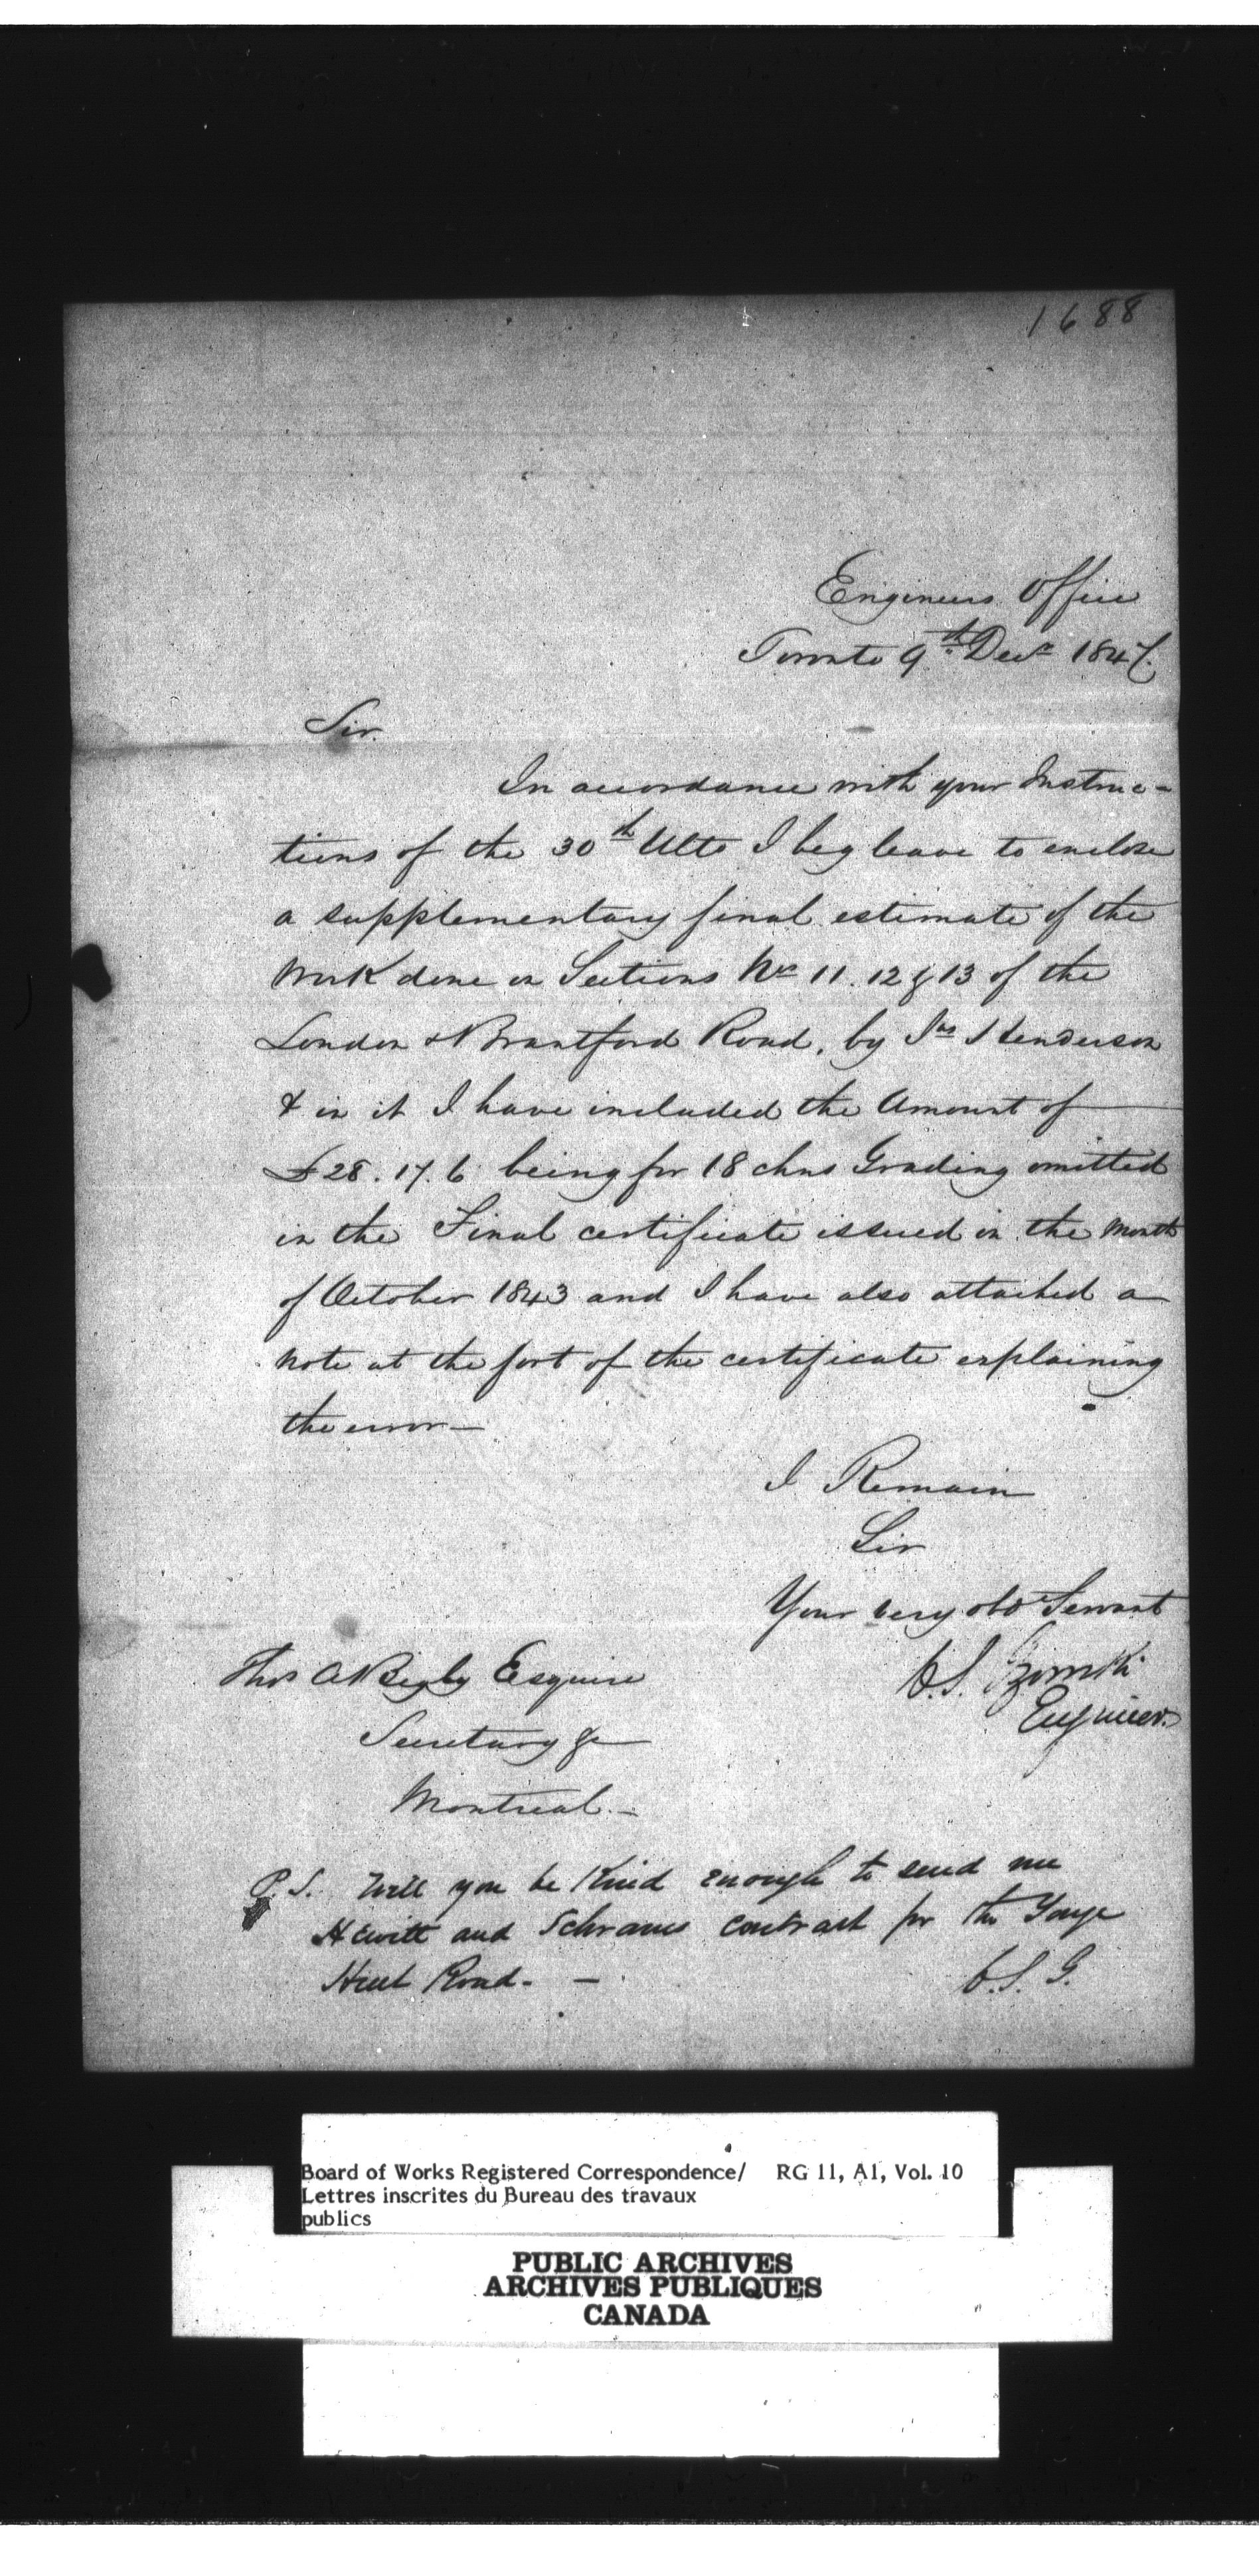 1688
Engineers Office
Toronto 9th Decr 1847.
Sir.
In accordance with your Instruc-
tions of the 30th Ulto I beg leave to enclose
a supplementary final estimate of the
Work done on Sections No 11. 12 & 13 of the
London & Brantford Road, by Jas Henderson
& in it I have included the Amount of
£28.17.6 being for 18 chns Grading omitted
in the Final certificate issued in the Month
of October 1843 and I have also attached a
note at the foot of the certificate explaining
the error—
I Remain
Sir
Your very obt Servant
C.S. Gzowski
Engineer.
Thos A Begly Esquire
Secretary &c
Montreal.-
P.S. Will you be Kind enough to send me
Hewitt and Schrams contract for the Yonge
Street Road. —
C.S.G.
Board of Works Registered Correspondence/ RG 11, A1, Vol. 10
Lettres inscrites du Bureau des travaux
publics
PUBLIC ARCHIVES
ARCHIVES PUBLIQUES
CANADA